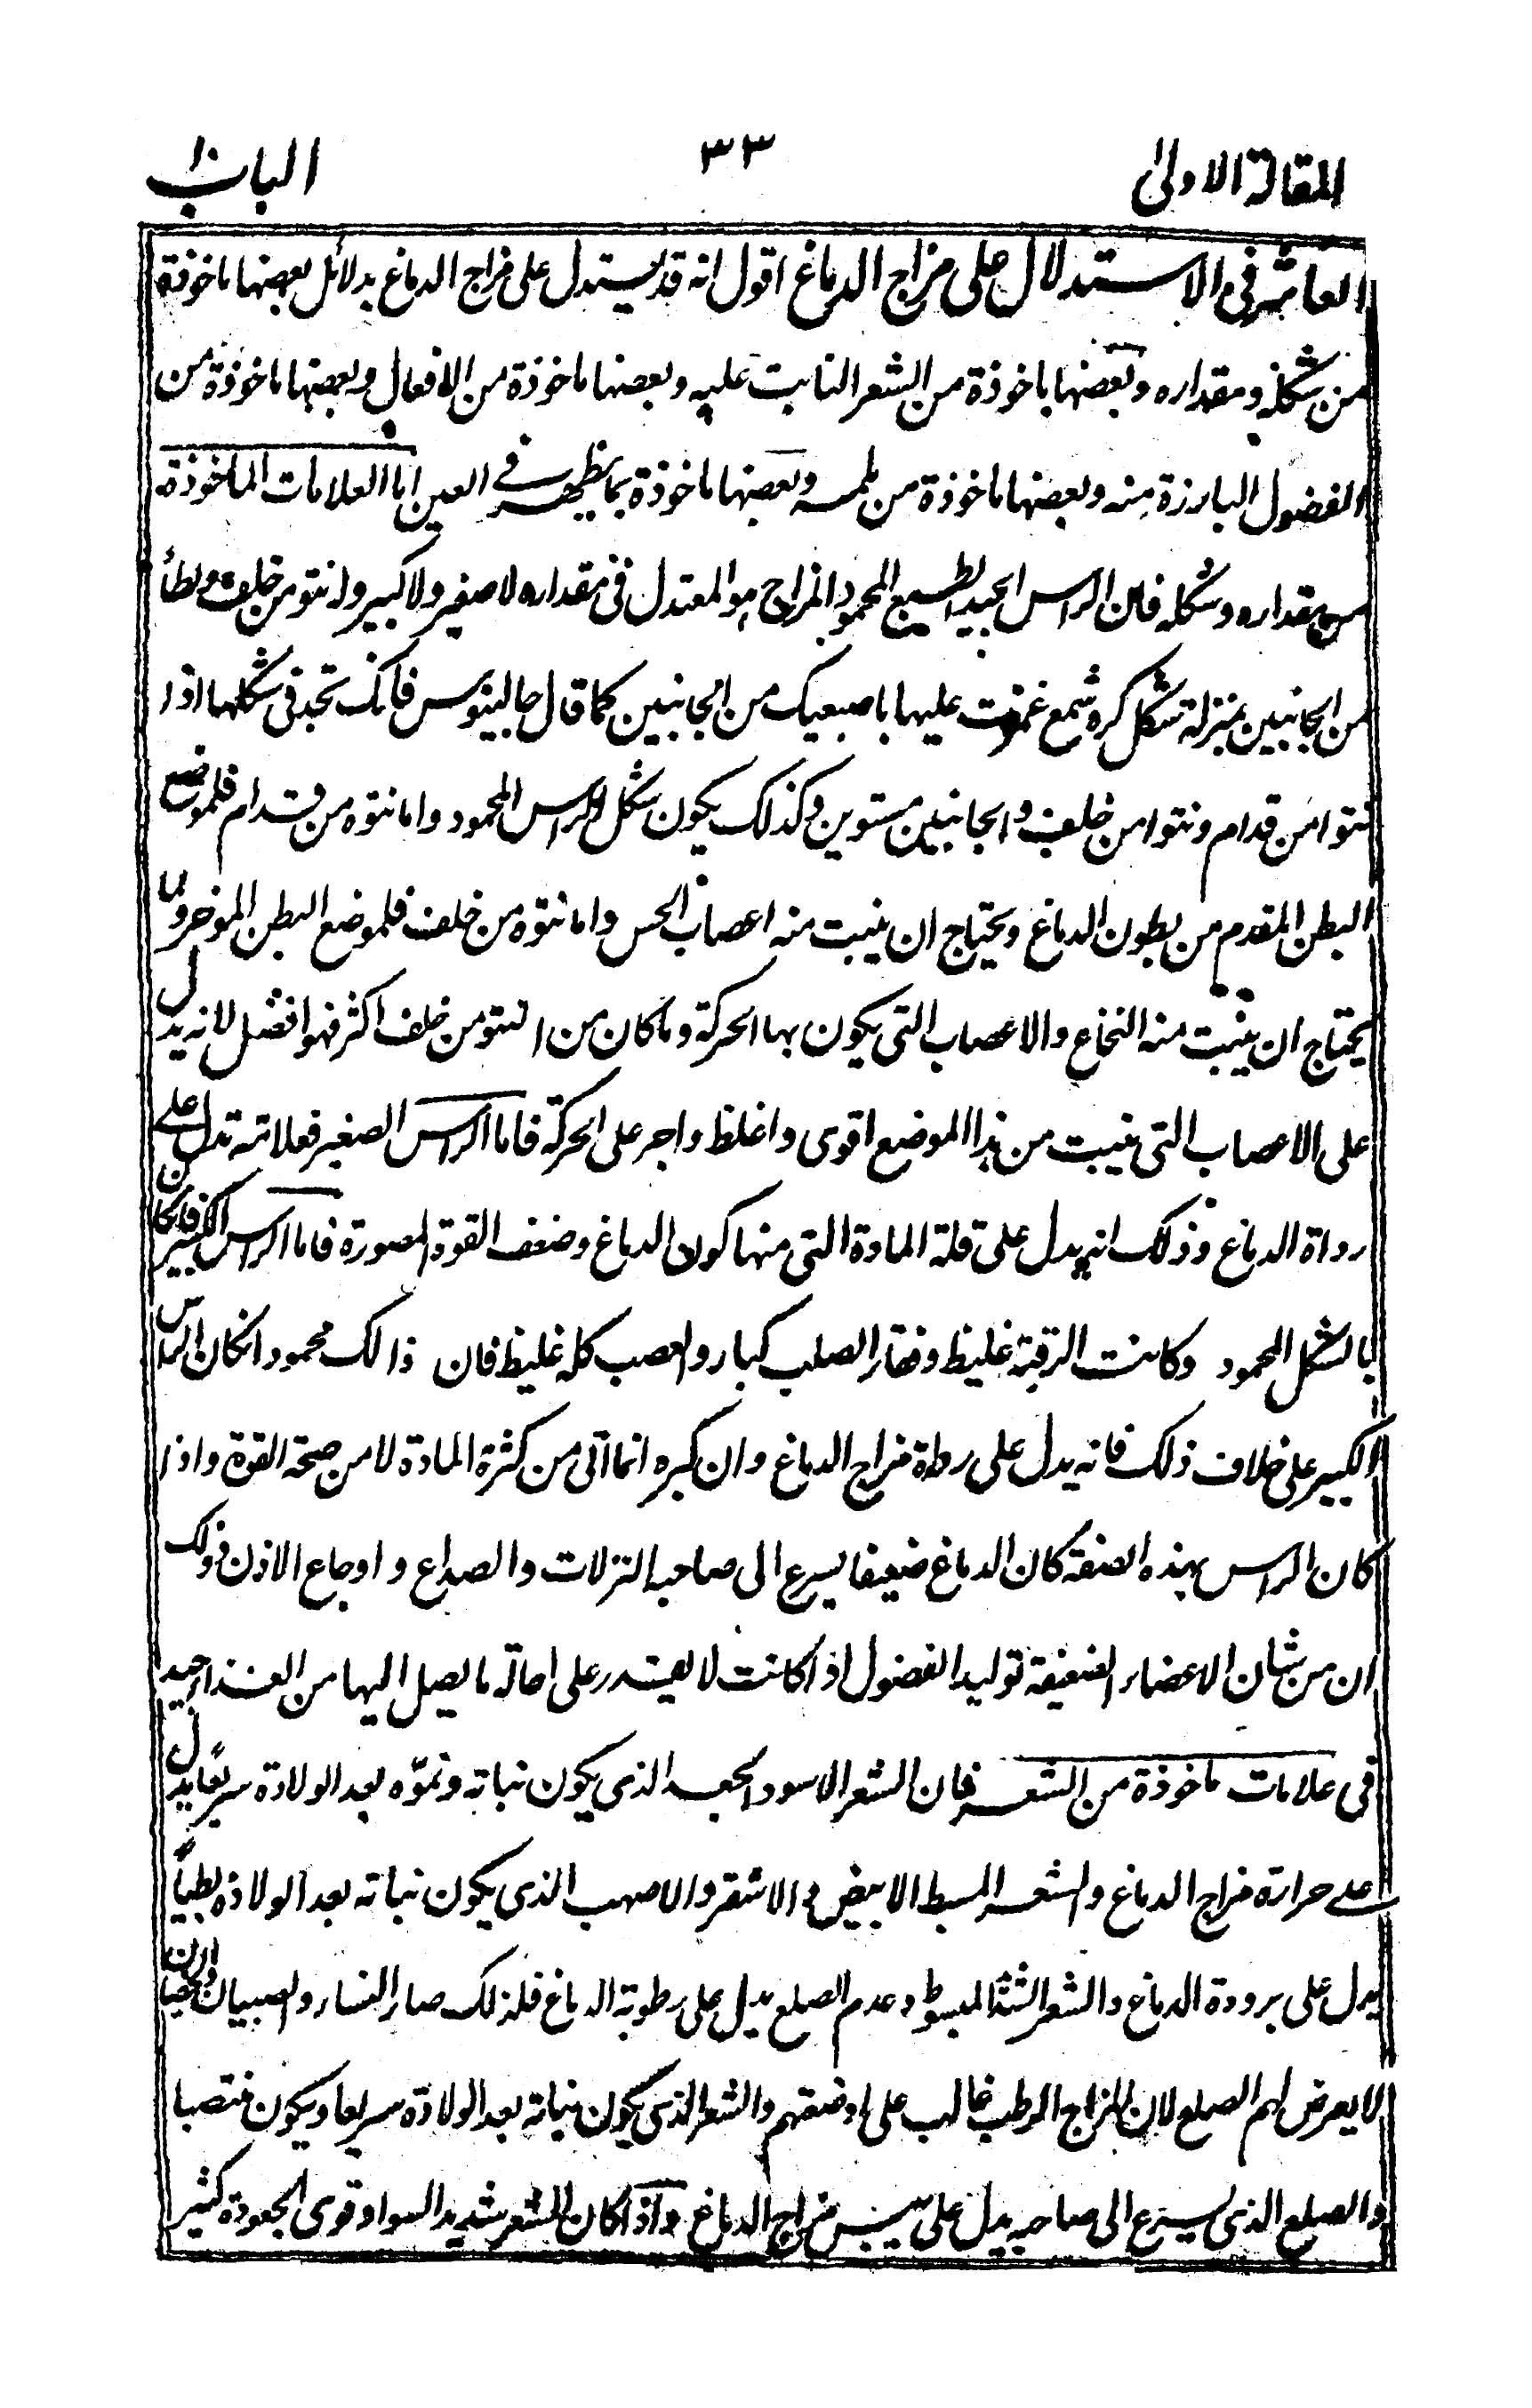 المقالة الاولىٰ ٣٣ الباب ١٠
العاشر فى الاستدلال على مزاج الدماغ اقول انه قد يستدل على مزاج الدماغ بدلائل بعضها ماخوذة
من شكله ومقداره وبعضها ماخوذة من الشعر النابت عليه وبعضها ماخوذة من الافعال وبعضها ماخوذة من
الفضول البارزة منه وبعضها ماخوذة من ملمسه وبعضها ماخوذة بما يظهر فے العين اما العلامات الماخوذة
من مقداره وشكله فان الراس الجيد الطبيع المحمود المزاج هو المعتدل فى مقداره لا صغير ولا كبير وله نتو من خلف ولطأ
من الجانبين بمنزلة شكل كره شمع غمزت عليها باصبعيك من الجانبين كما قال جالينوس فانك تجد فى شكلها اذا
نتوا من قدام ونتوا من خلف والجانبين مستوين وكذلك يكون شكل الراس المحمود واما نتوه من قدام فلموضع
البطن المقدم من بطون الدماغ ويحتاج ان ينبت منه اعصاب الحس واما نتوه من خلف فلموضع البطن الموخر ولما
يحتاج ان ينبت منه النخاع والاعصاب التى يكون بها الحركة وما كان من النتو من خلف اكثر فهو افضل لانه يدل
على الاعصاب التى ينبت من هذا الموضع اقوى واغلظ واجر على الحركة فاما الراس الصغير فعلامته تدل علے
رداة الدماغ وذلك انه يدل على قلة المادة التى منها كون الدماغ وضعف القوة المصورة فاما الراس الكبير فان كان
بالشكل المحمود وكانت الرقبة غليظ وفقار الصلب كبار والعصب كله غليظ فان ذالك محمود انكان الراس
الكبير على خلاف ذلك فانه يدل على رداة مزاج الدماغ وان كبره انما اتى من كثرة المادة لا من صحة القوة واذا
كان الراس بهذه الصفة كان الدماغ ضعيفا يسرع الى صاحبه النزلات والصداع واوجاع الاذن وذلك
ان من شان الاعضاء الضعيفة توليد الفضول اذ كانت لا يقتدر على احالة ما يصل اليها من الغذاء جيد
فى علامات ماخوذة من الشعر فان الشعر الاسود الجعد الذى يكون نباته ونموّه بعد الولادة سريعاً يدل
علے حرارة مزاج الدماغ والشعر السبط الابيض والاشقر والاصهب الذى يكون نباته بعد الولادة بطياً
يدل على برودة الدماغ والشعر المبسوط وعدم الصلع يدل على رطوبة الدماغ فلذلك صار النساء والصبيان والخصيان
لا يعرض لهم الصلع لان المزاج الرطب غالب على ادمغتهم والشعر الذى يكون نباته بعد الولادة سريعا ويكون منتصبا
والصلع الذى يسرع الى صاحبه يدل على يبس مزاج الدماغ واذا كان الشعر شديد السواد وقوى الجعودة كثير